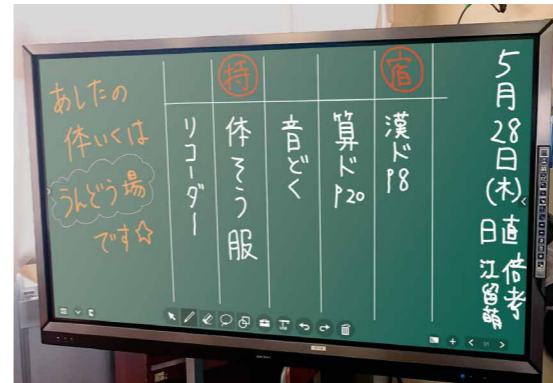 5月28日(木)
日直
倍考
江留萌
宿
漢ド P8
算ド P20
音どく
持
体そう服
リコーダー
あしたの
体いくは
うんどう場
です☆